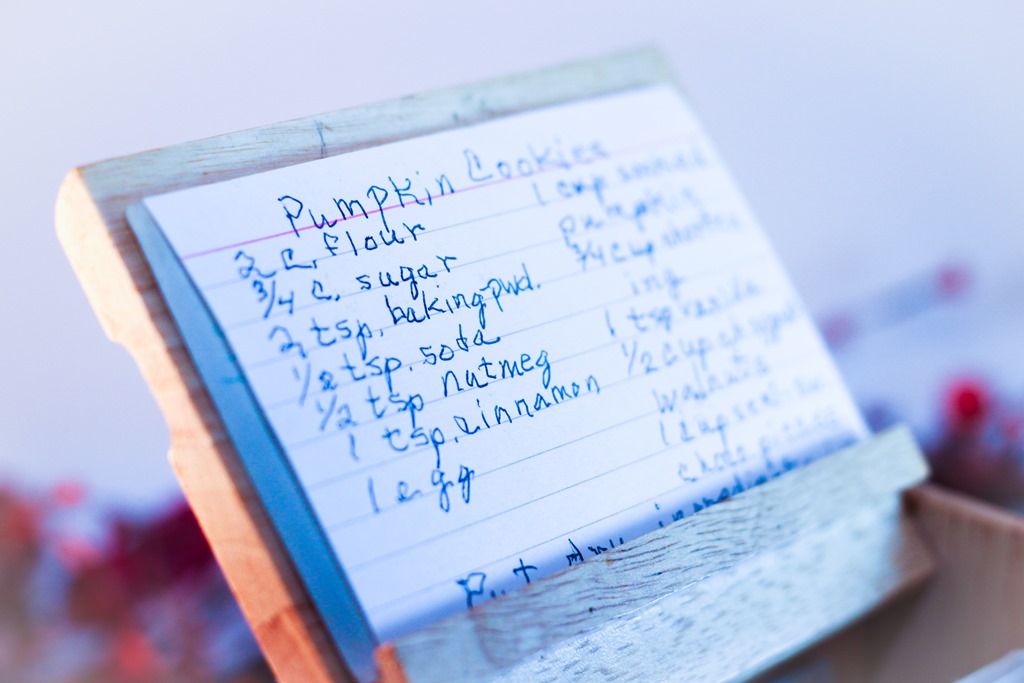 Pumpkin Cookies
2 C. flour
3/4 C. sugar
2 tsp. baking pwd.
1/2 tsp. soda
1/2 tsp nutmeg
1 tsp. cinnamon
1 egg
1 cup
pumpkin
3/4 cup
ing
1 tsp vanilla
1/2 cup
walnuts
1 cup
choc. pieces
Put dry ingredients